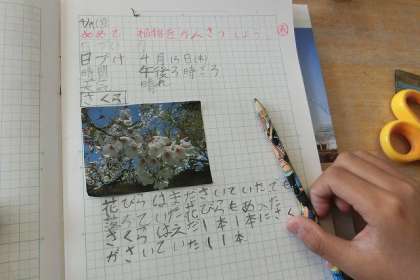 4/15(水)
めあて 植物をかんさつしよう
日づけ 4月15日(水)
時間 午後3時ごろ
天気 晴れ
さくら
花びらはまださいていたても
落ちていた花びらもあった
さくらはえだ1本1本にさく
がさいていた1本